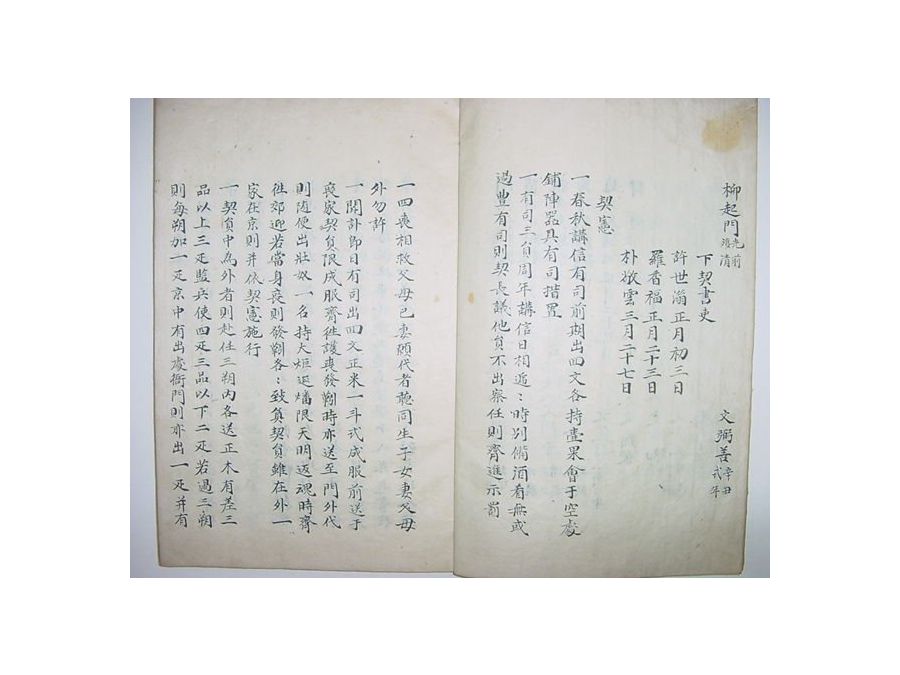 柳起門
文弼善 辛丑式年
下契書吏
許世瀡正月初三日
羅香福正月二十三日
朴敬雲三月二十七日
契憲
一春秋講信有司前期出四文各持壺果會于空處
鋪陣器具有司措置
一有司三負周年講信日相遞遞時別備酒肴無或
過豊有司則契長議他負不出察任則齊進示罰
一四喪相救父母己妻願代者聽同生子女妻父母
外勿許
一聞訃即日有司出四文正米一斗式成服前送于
喪家契負限成服齊徃護喪發靷時亦送至門外代
則随便出壯奴一名持大炬返燔限天明返魂時齊
徃郊迎若當身喪則發靷各各致負契負雖在外一
家在京則并依契憲施行
一契負中為外者則赴任三朔內各送正木有差三
品以上三疋監兵使四疋三品以下二疋若過三朔
則每朔加一疋京中有出處衙門則亦出一疋并有